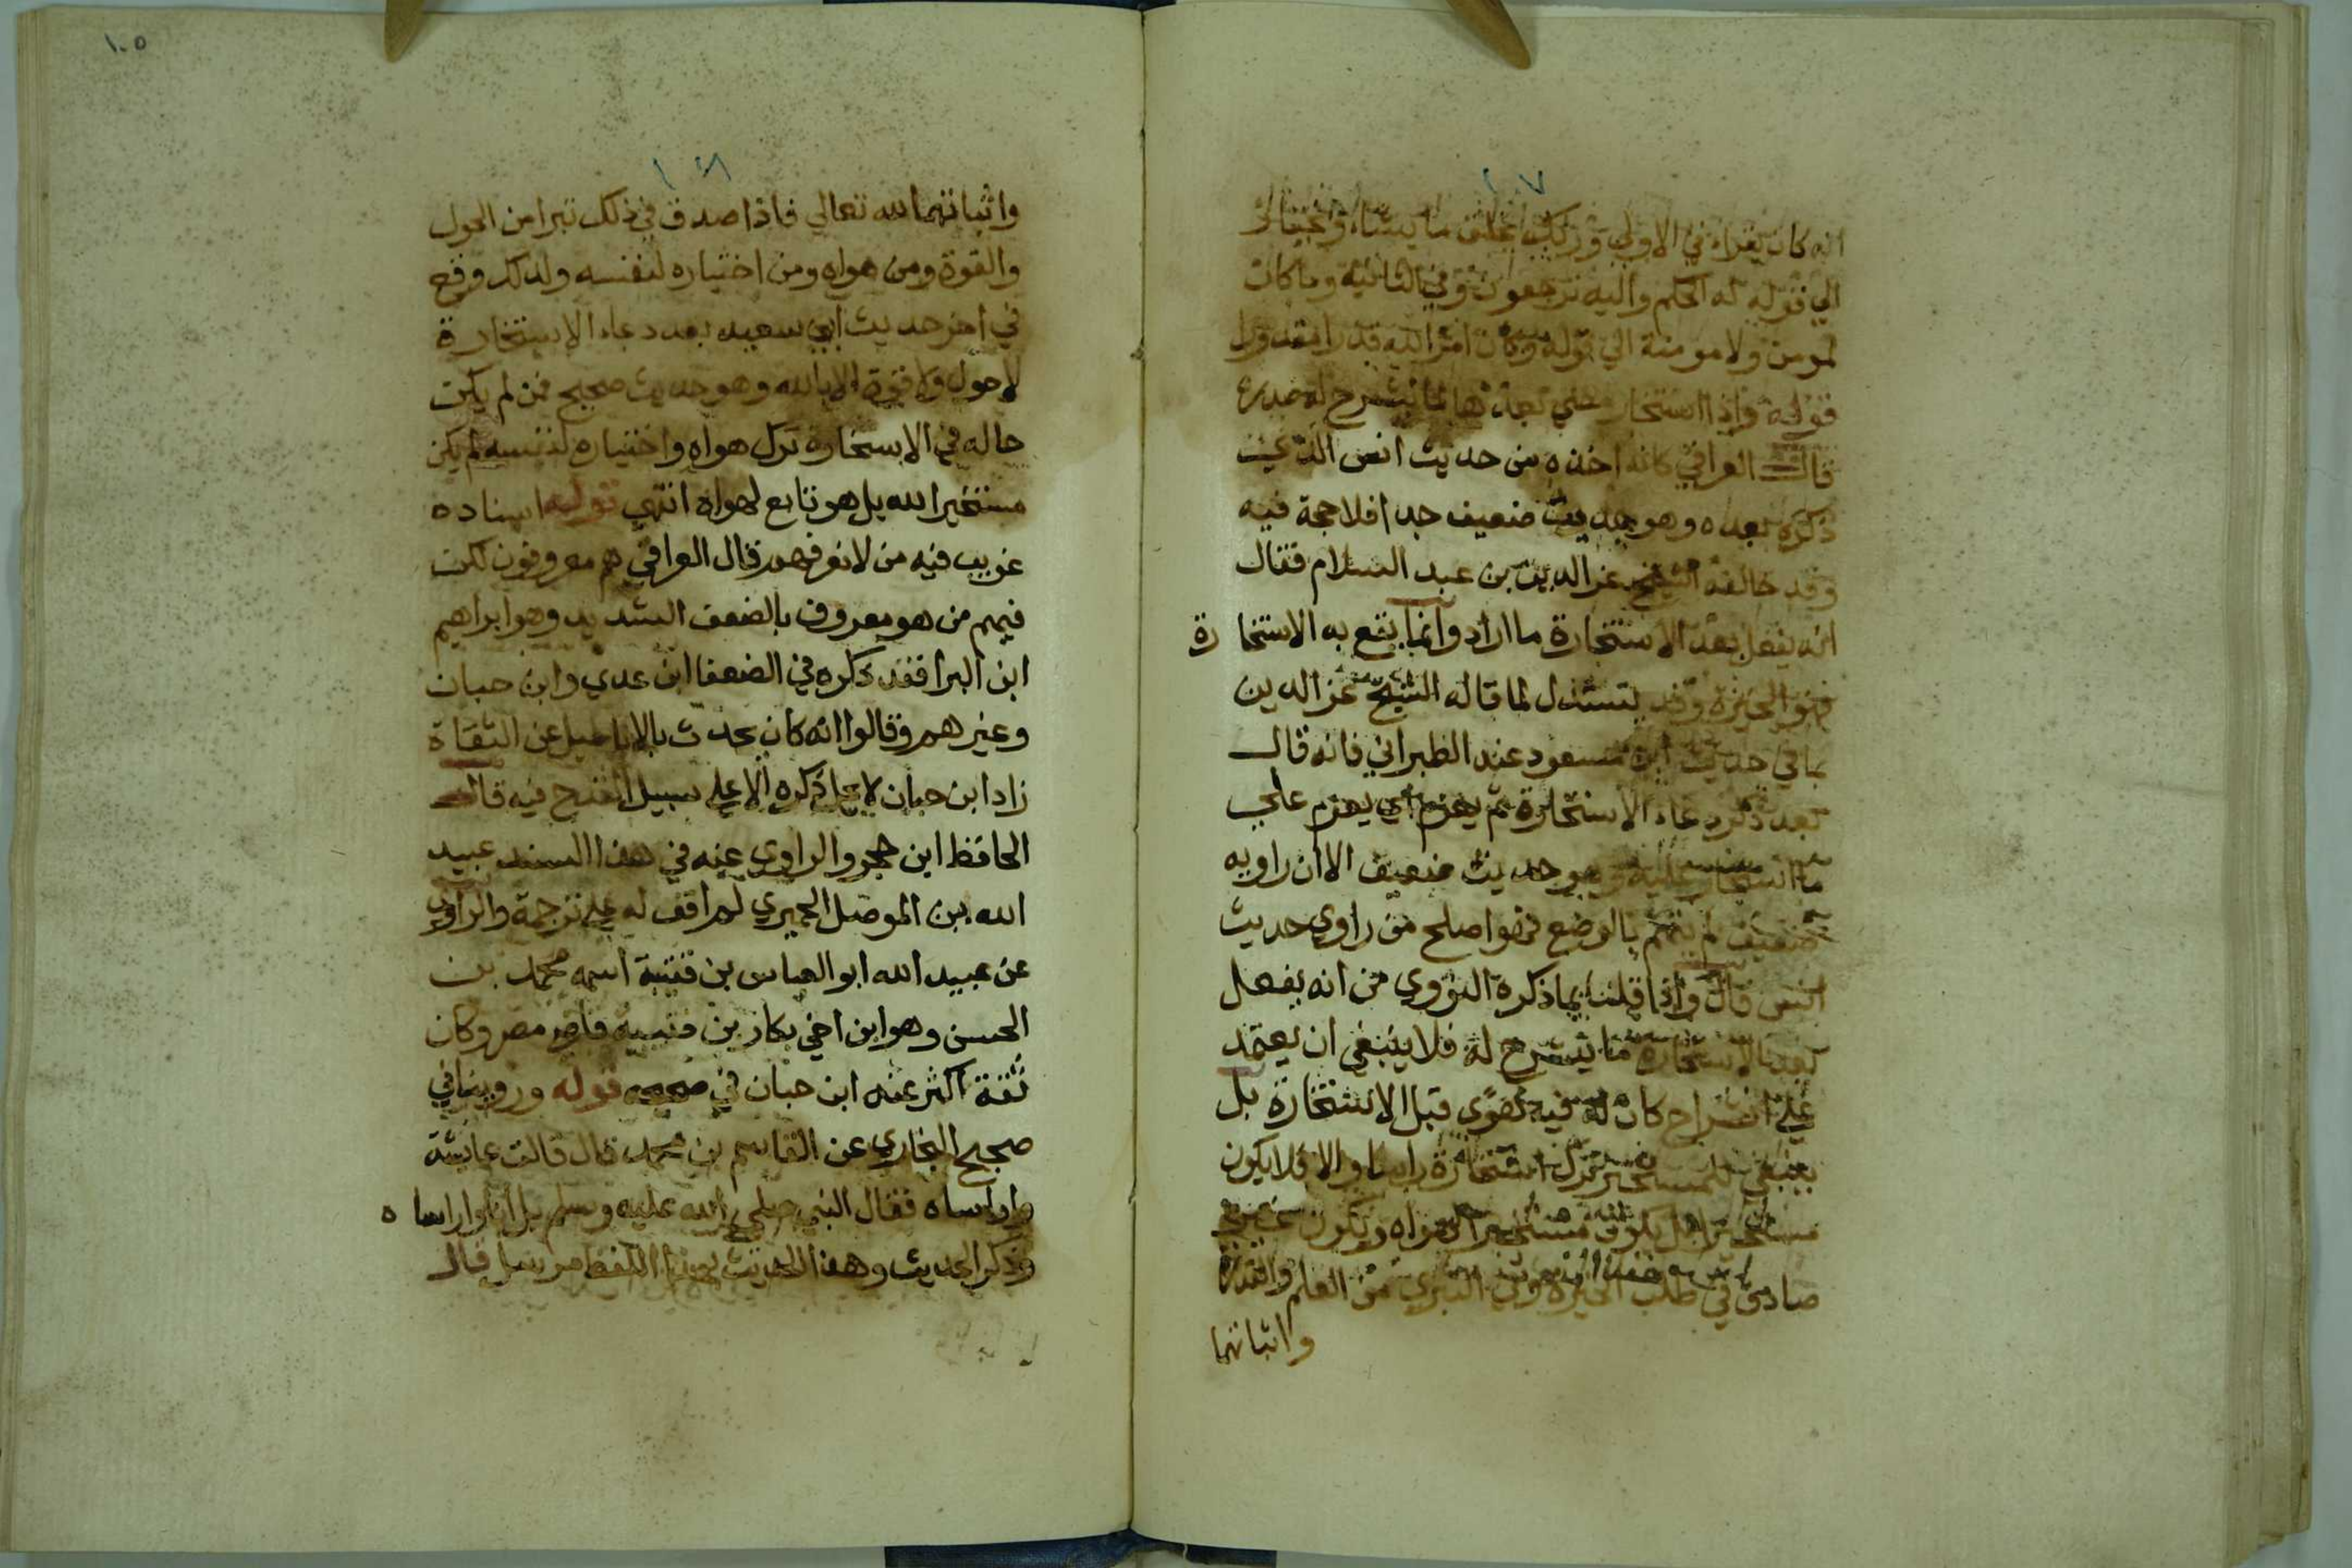 ١٠٧
انه كان يقراء في الاولي وربك يخلق ما يشاء ويختار
الي قوله له الحكم واليه ترجعون وفي الثانية وما كان
لمومن ولا مومنة الي قوله وكان امر الله قدرا مقدورا
قوله واذا استخار مضي بعدها لما ينشرح له صدره
قال العراقي كانه اخذه من حديث انس الذي
ذكره بعده وهو حديث ضعيف جدا فلا حجة فيه
وقد خالفه الشيخ عز الدين بن عبد السلام فقال
انه يفعل بعد الاستخارة ما اراد وانما يقع به الاستخارة
فهو الخيرة وقد يستدل لما قاله الشيخ عز الدين
بما في حديث ابن مسعود عند الطبراني فانه قال
بعد ذكر دعاء الاستخارة ثم يعزم اي يعزم علي
ما استخار عليه وهو حديث ضعيف الا ان راويه
ضعيف لم يتهم بالوضع فهو اصلح من راوي حديث
انس قال واذا قلنا بما ذكره النووي من انه يفعل
بعد الاستخارة ما ينشرح له فلا ينبغي ان يعتمد
علي انشراح كان له فيه هوي قبل الاستخارة بل
ينبغي للمستخير ترك استخارة راسا والا فلا يكون
مستخير الله بل يكون مستخيرا لهواه ويكون غير
صادق في طلب الخيرة وفي التبري من العلم والقدرة
واثباتهما
١٠٥
١٠٨
واثباتهما لله تعالي فاذا صدق في ذلك تبرا من الحول
والقوة ومن هواه ومن اختياره لنفسه ولذلك وقع
في اخر حديث ابي سعيد بعد دعاء الاستخارة
لا حول ولا قوة الا بالله وهو حديث صحيح فمن لم يكن
حاله في الاستخارة ترك هواه واختياره لنفسه لم يكن
مستخيرا لله بل هو تابع لهواه انتهي قوله اسناده
غريب فيه من لا نعرفهم قال العراقي هم معروفون لكن
فيهم من هو معروف بالضعف الشديد وهو ابراهيم
ابن البرا فقد ذكره في الضعفا ابن عدي وابن حبان
وغيرهم وقالوا انه كان يحدث بالاباطيل عن الثقاة
زاد ابن حبان لا يحل ذكره الا علي سبيل القدح فيه قال
الحافظ ابن حجر والراوي عنه في هذا السند عبيد
الله بن الموصل الحميري لم اقف له علي ترجمة والراوي
عن عبيد الله ابو العباس بن قتيبة اسمه محمد بن
الحسن وهو ابن اخي بكار بن قتيبة قاضي مصر وكان
ثقة اكثر عنه ابن حبان في صحيحه قوله وروينا في
صحيح البخاري عن القاسم بن محمد قال قالت عايشة
واراساه فقال النبي صلي الله عليه وسلم بل انا واراساه
وذكر الحديث وهذا الحديث بهذا اللفظ مرسل قال